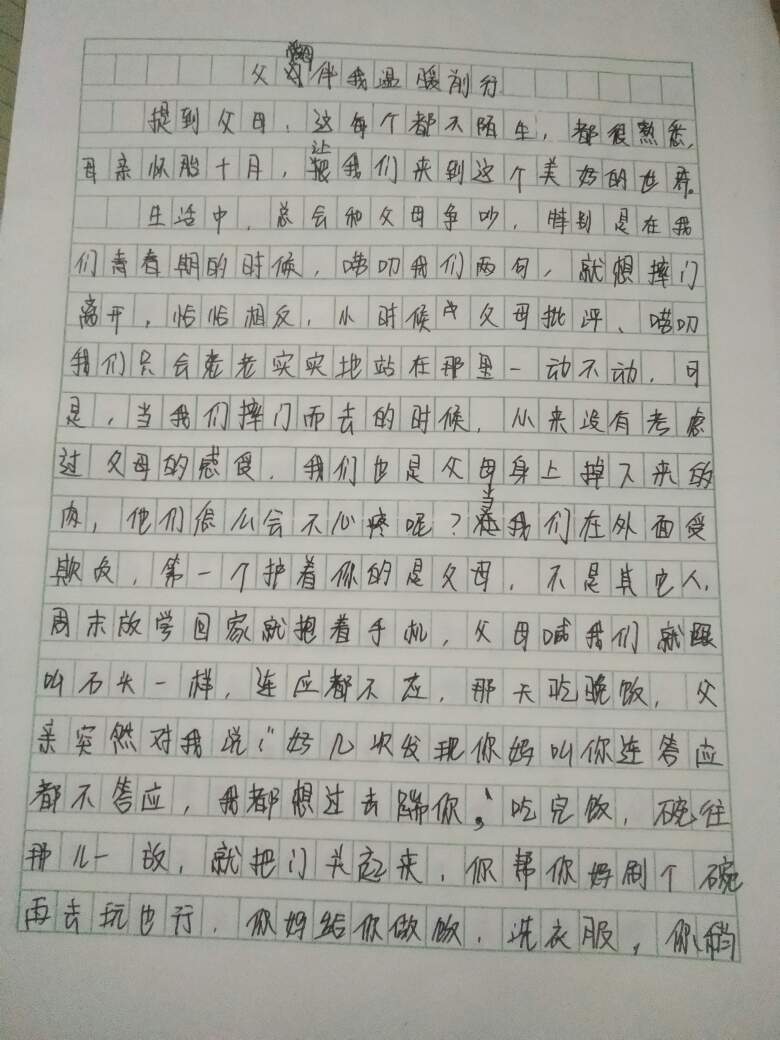 父爱伴我温暖前行
提到父母，这每个都不陌生，都很熟悉，
母亲怀胎十月，让我们来到这个美好的世界。
生活中，总会和父母争吵，特别是在我
们青春期的时候，唠叨我们两句，就想摔门
离开，恰恰相反，小时候父母批评、唠叨
我们只会老老实实地站在那里一动不动，可
是，当我们摔门而去的时候，从来没有考虑
过父母的感受，我们也是父母身上掉下来的
肉，他们怎么会不心疼呢？当我们在外面受
欺负，第一个护着你的是父母，不是其它人，
周末放学回家就抱着手机，父母喊我们就跟
叫石头一样，连应都不应，那天吃晚饭，父
亲突然对我说：“好几次发现你妈叫你连答应
都不答应，我都想过去踹你，”吃完饭，碗往
那儿一放，就把门关起来，你帮你妈刷个碗
再去玩也行，你妈给你做饭，洗衣服，你稍